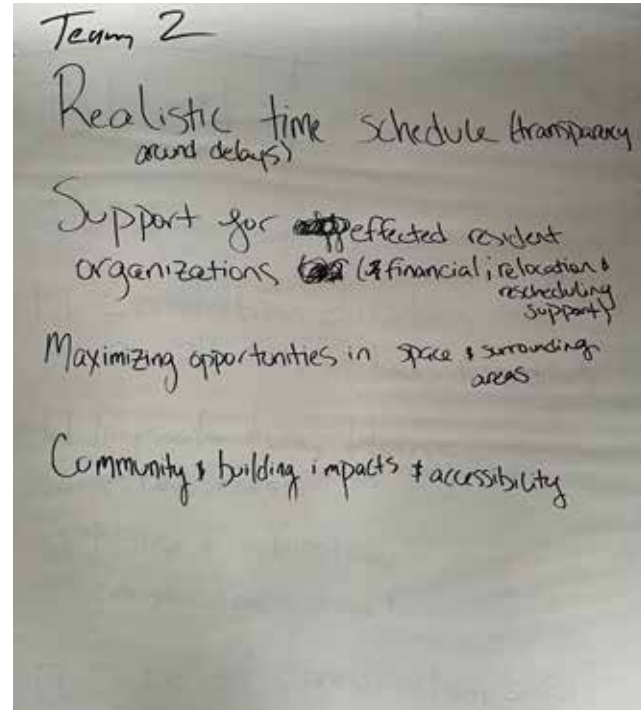 Team 2
Realistic time schedule (transparency
around delays)
Support for effected resident
organizations (financial; relocation &
rescheduling
support)
Maximizing opportunities in space & surrounding
areas
Community & building impacts & accessibility